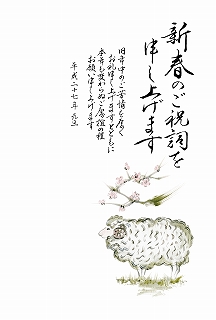 新春のご祝詞を
申し上げます
旧年中のご芳情を厚く
お礼申し上げますとともに
本年も変わらぬご厚誼の程
お願い申し上げます
平成二十七年 元旦